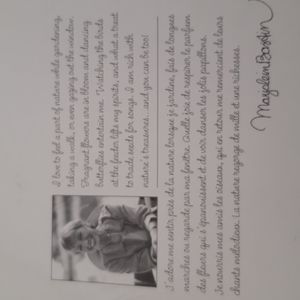 I love to feel a part of nature while gardening,
taking a walk, or even gazing out the window.
Fragrant flowers are in bloom and dancing
butterflies entertain me. Watching the birds
at the feeder lifts my spirits, and what a treat
to trade seeds for songs. I am rich with
nature's treasures...and you can be too!
J'adore me sentir près de la nature lorsque je jardine, fais de longues
marches ou regarde par ma fenêtre. Quelle joie de respirer le parfum
des fleurs qui s'épanouissent et de voir danser les jolis papillons.
Je nourris mes amis les oiseaux, qui en retour me remercient de leurs
chants mélodieux: la nature regorge de mille et une richesses.
Marjolein Bastin